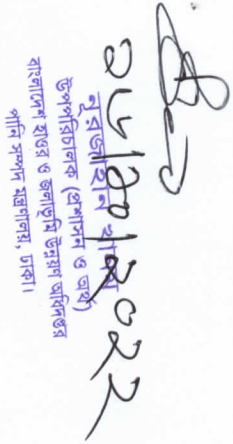 ১৮/১০/২০২২
নুরজাহান
উপপরিচালক (প্রশাসন ও অর্থ)
বাংলাদেশ হাওর ও জলাভূমি উন্নয়ন অধিদপ্তর
পানি সম্পদ মন্ত্রণালয়, ঢাকা।